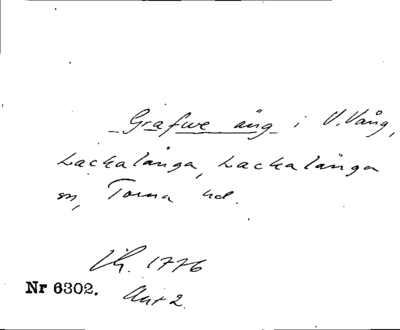 Grafwe äng i V. Vång,
Lackalänga, Lackalänga
sn, Torna hd.
Lh. 1776
Nr 6302. Akt 2.